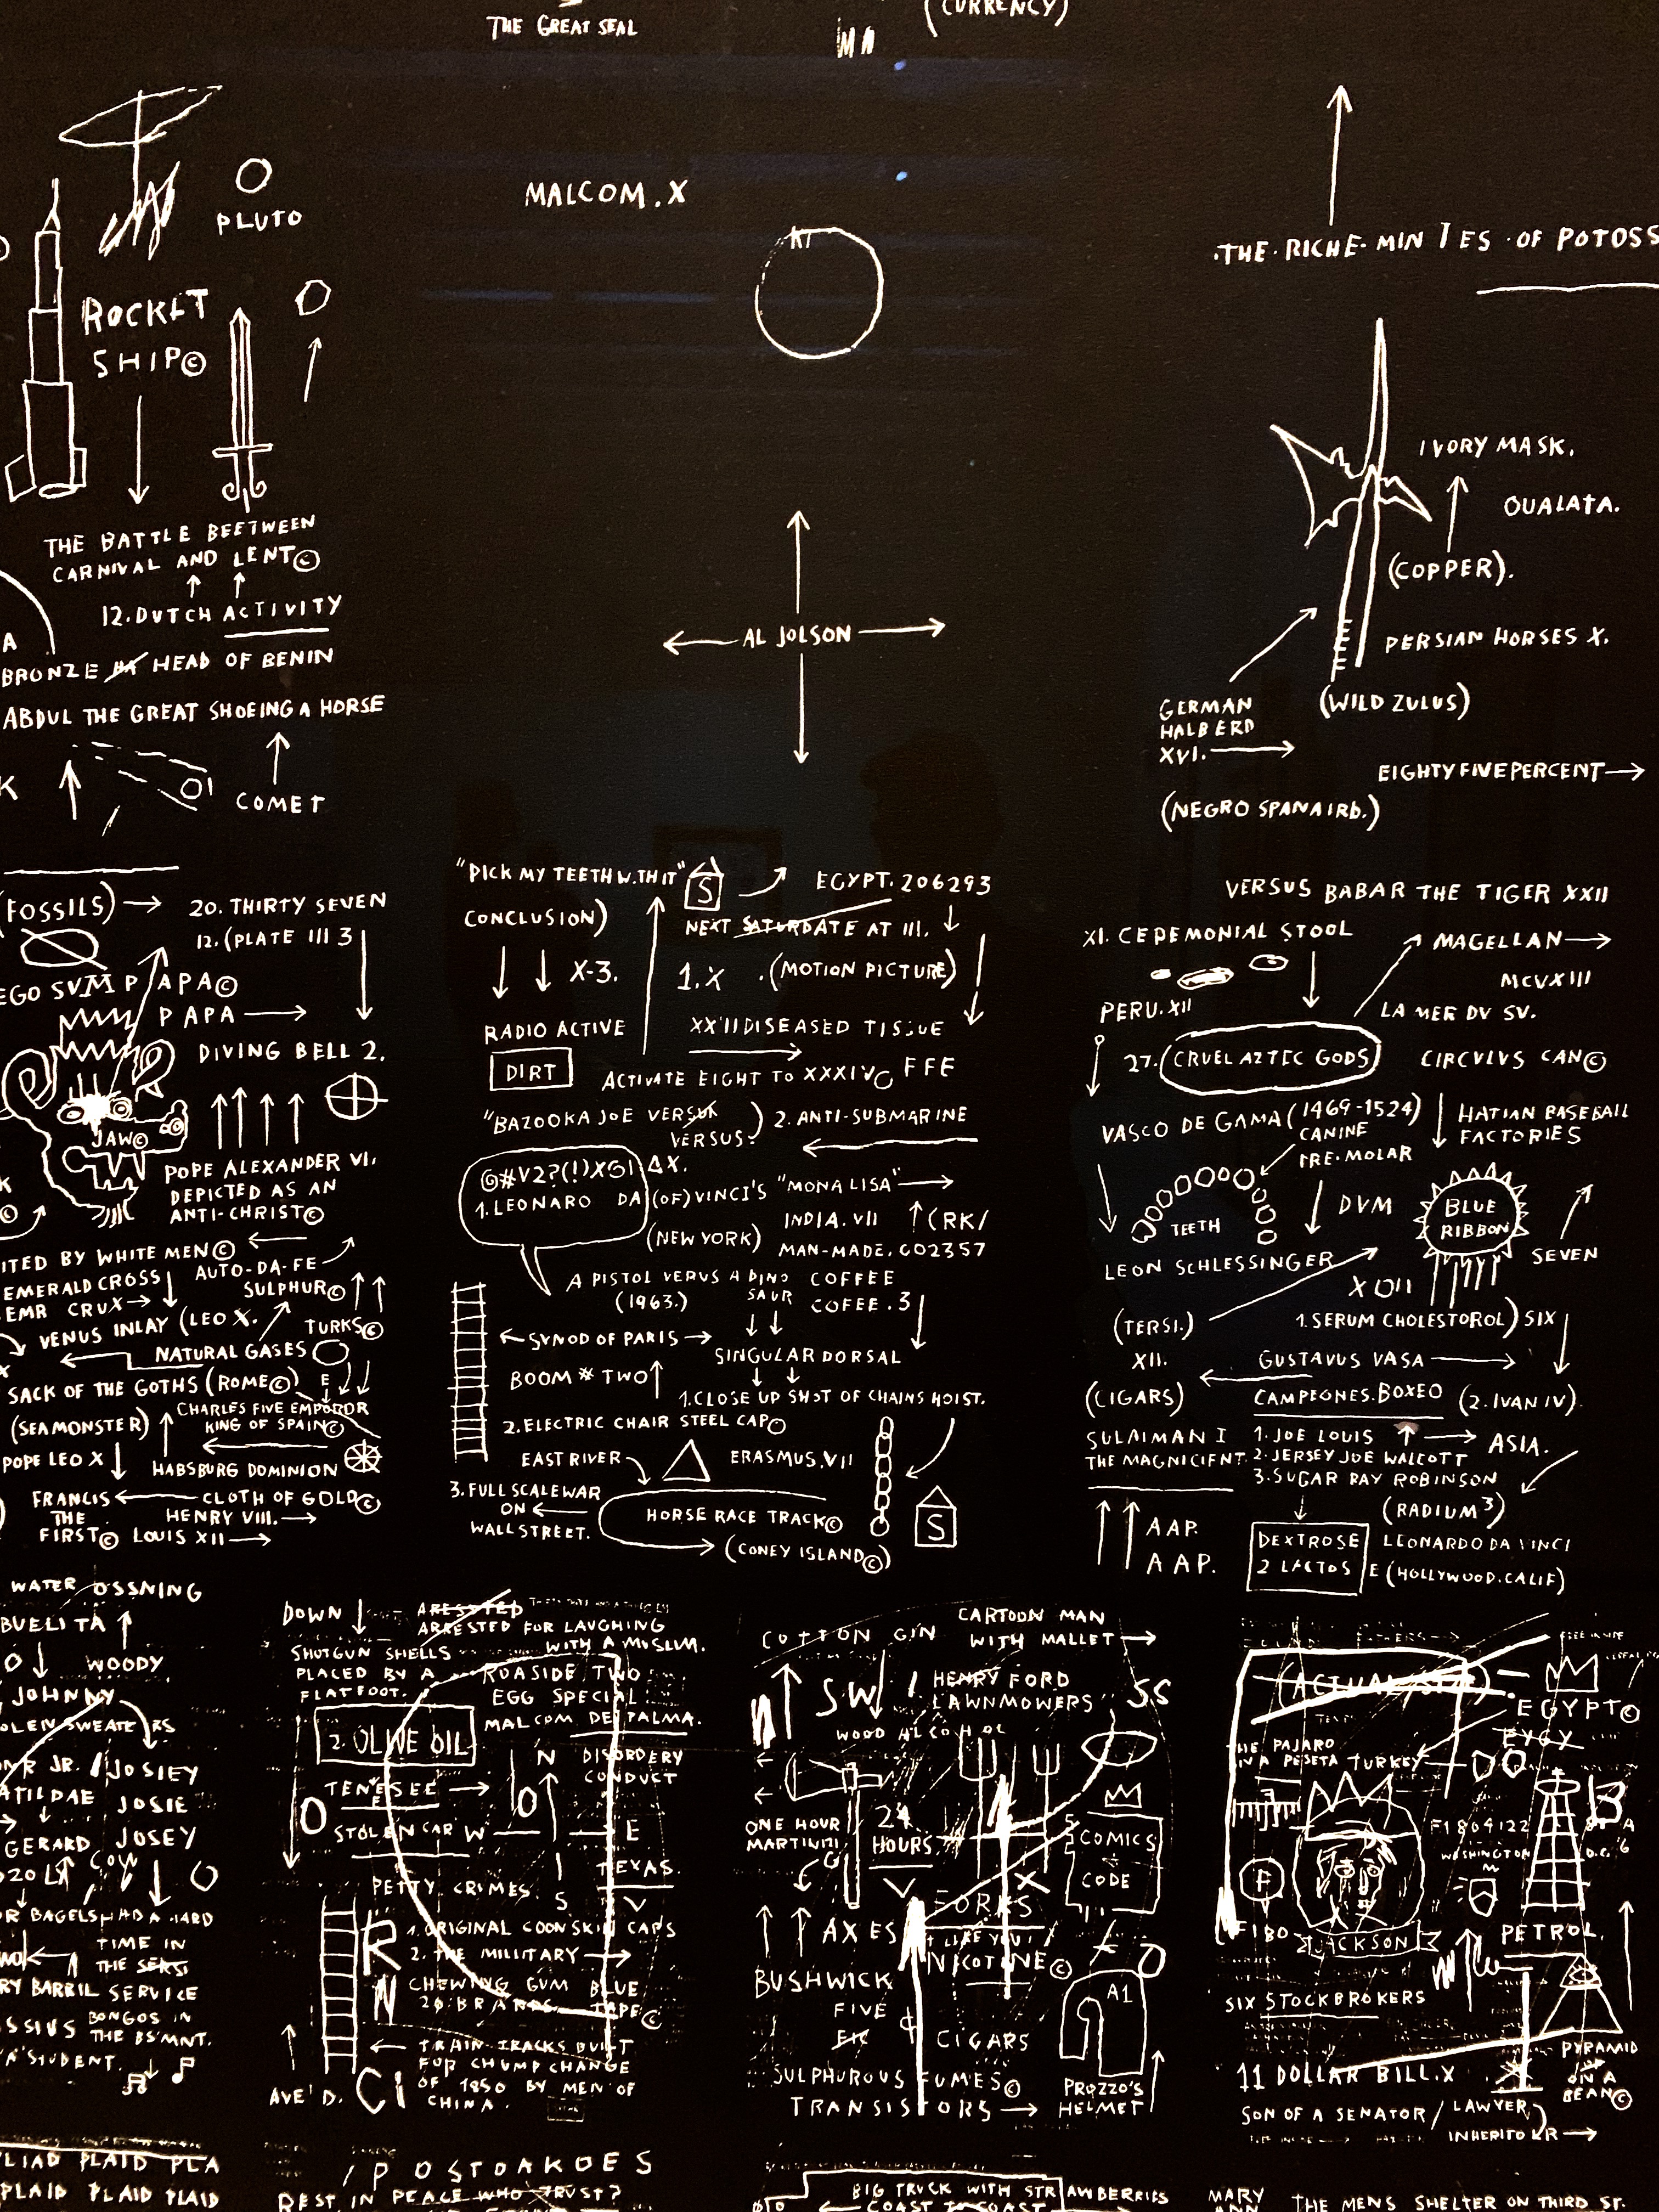 THE GREAT SEAL
(CURRENCY)
MALCOM.X
PLUTO
ROCKET
SHIP©
THE BATTLE BEETWEEN
CARNIVAL AND LENT©
12.DUTCH ACTIVITY
BRONZE HEAD OF BENIN
ABDUL THE GREAT SHOEING A HORSE
COMET
AL JOLSON
·THE·RICHE·MINIES·OF POTOSS
IVORY MASK.
OUALATA.
(COPPER).
PERSIAN HORSES X.
(WILD ZULUS)
GERMAN
HALBERD
XVI.
EIGHTYFIVEPERCENT
(NEGRO SPANAIRD.)
(FOSSILS)
20. THIRTY SEVEN
12.(PLATE III 3
EGO SVM PAPA©
PAPA
DIVING BELL 2.
JAW©
POPE ALEXANDER VI.
DEPICTED AS AN
ANTI-CHRIST©
ITED BY WHITE MEN©
AUTO-DA-FE
EMERALD CROSS
SULPHUR©
EMR CRUX
VENUS INLAY (LEO X.
TURKS©
NATURAL GASES
SACK OF THE GOTHS (ROME©)
(SEAMONSTER)
CHARLES FIVE EMPOROR
KING OF SPAIN©
POPE LEO X
HABSBURG DOMINION
FRANCIS
THE
FIRST©
CLOTH OF GOLD©
HENRY VIII.
LOUIS XII
"PICK MY TEETH W.TH IT"
S
EGYPT. 206293
CONCLUSION)
NEXT SATURDATE AT III.
X-3.
1.X
.(MOTION PICTURE)
RADIO ACTIVE
DIRT
XXIIDISEASED TISSUE
ACTIVATE EIGHT TO XXXIVC FFE
"BAZOOKA JOE VERSUK
VERSUS.)
2. ANTI-SUBMARINE
@#V2?(!)X©! ΔX.
1.LEONARO DA (OF) VINCI'S "MONA LISA"
(NEW YORK)
INDIA. VII
(RK/
MAN-MADE. CO2357
A PISTOL VERUS A DINO
SAUR
(1963.)
COFFEE
COFEE.3
SYNOD OF PARIS
SINGULAR DORSAL
BOOM # TWO
1.CLOSE UP SHOT OF CHAINS HOIST.
2.ELECTRIC CHAIR STEEL CAP©
EAST RIVER
ERASMUS.VII
3.FULL SCALE WAR
ON
WALL STREET.
HORSE RACE TRACK©
(CONEY ISLAND©)
S
VERSUS BABAR THE TIGER XXII
XI. CEPEMONIAL STOOL
MAGELLAN
MCVXIII
PERU.XII
LA MER DU SV.
27.
CRUEL AZTEC GODS
CIRCVLVS CAN©
VASCO DE GAMA (1469-1524)
CANINE
PRE-MOLAR
HATIAN BASEBALL
FACTORIES
TEETH
DVM
BLUE
RIBBON
LEON SCHLESSINGER
SEVEN
XOII
(TERSI.)
1.SERUM CHOLESTOROL)
SIX
XII.
GUSTAVUS VASA
(CIGARS)
CAMPEONES.BOXEO
(2.IVAN IV).
SULAIMAN I
THE MAGNIFICENT.
1. JOE LOUIS
ASIA.
2.JERSEY JOE WALCOTT
3.SUGAR RAY ROBINSON
(RADIUM 3)
AAP.
AAP.
DEXTROSE
2 LACTOSE
LEONARDO DA VINCI
(HOLLYWOOD.CALIF)
WATER OSSNING
BUELITA
WOODY
JOHNNY
OLEN SWEATERS
JR.
JOSIEY
ATILDAE
JOSIE
GERARD
JOSEY
COW
R BAGELS HAD A HARD
TIME IN
THE SERSI
RY BARREL SERVICE
SSIUS
BONGOS IN
THE BS'MNT.
'A' STUDENT.
DOWN
ARESSTED
ARRESTED FOR LAUGHING
WITH A MUSLIM.
SHOTGUN SHELLS
PLACED BY A
FLATFOOT.
ROASIDE TWO
EGG SPECIAL
MALCOM DE PALMA.
2. OLIVE OIL
N
DISORDERY
CONDUCT
TENESEE
O
STOLEN CAR
W
E
TEXAS.
PETTY CRIMES.
S
1. ORIGINAL COONSKIN CAPS
2. THE MILLITARY
R
N
CHEWING GUM
26 BRANDS
BLUE
TAPE©
TRAIN TRACKS BUILT
FOR CHUMP CHANGE
OF 1850 BY MEN OF
CHINA.
AVE' D.
Ci
COTTON GIN
CARTOON MAN
WITH MALLET
SW
HENRY FORD
LAWNMOWERS
SS
WOOD ALCOHOL
ONE HOUR
MARTINI
24
HOURS
COMICS
CODE
FORKS
AXES
I LIKE YOU!
NICOTINE©
BUSHWICK
A1
FIVE
CIGARS
SULPHUROUS FUMES©
TRANSISTORS
PROZZO'S
HELMET
(ACTUAL SIZE)
EGYPT©
EYGY
PAJARO
PESETA
TURKEY
B
F1804122
WASHINGTON
D.C.
F
JACKSON
PETROL.
SIX STOCKBROKERS
11 DOLLAR BILL.X
PYRAMID
OF
ON A
BEAN©
SON OF A SENATOR / LAWYER
INHERITOR
PLAID PLAID PLA
PLAID PLAID PLAID
POSTOAKOES
REST IN PEACE WHO TRUST?
BIG TRUCK WITH STRAWBERRIES
COAST TO COAST
MARY
ANN
THE MENS SHELTER ON THIRD ST.